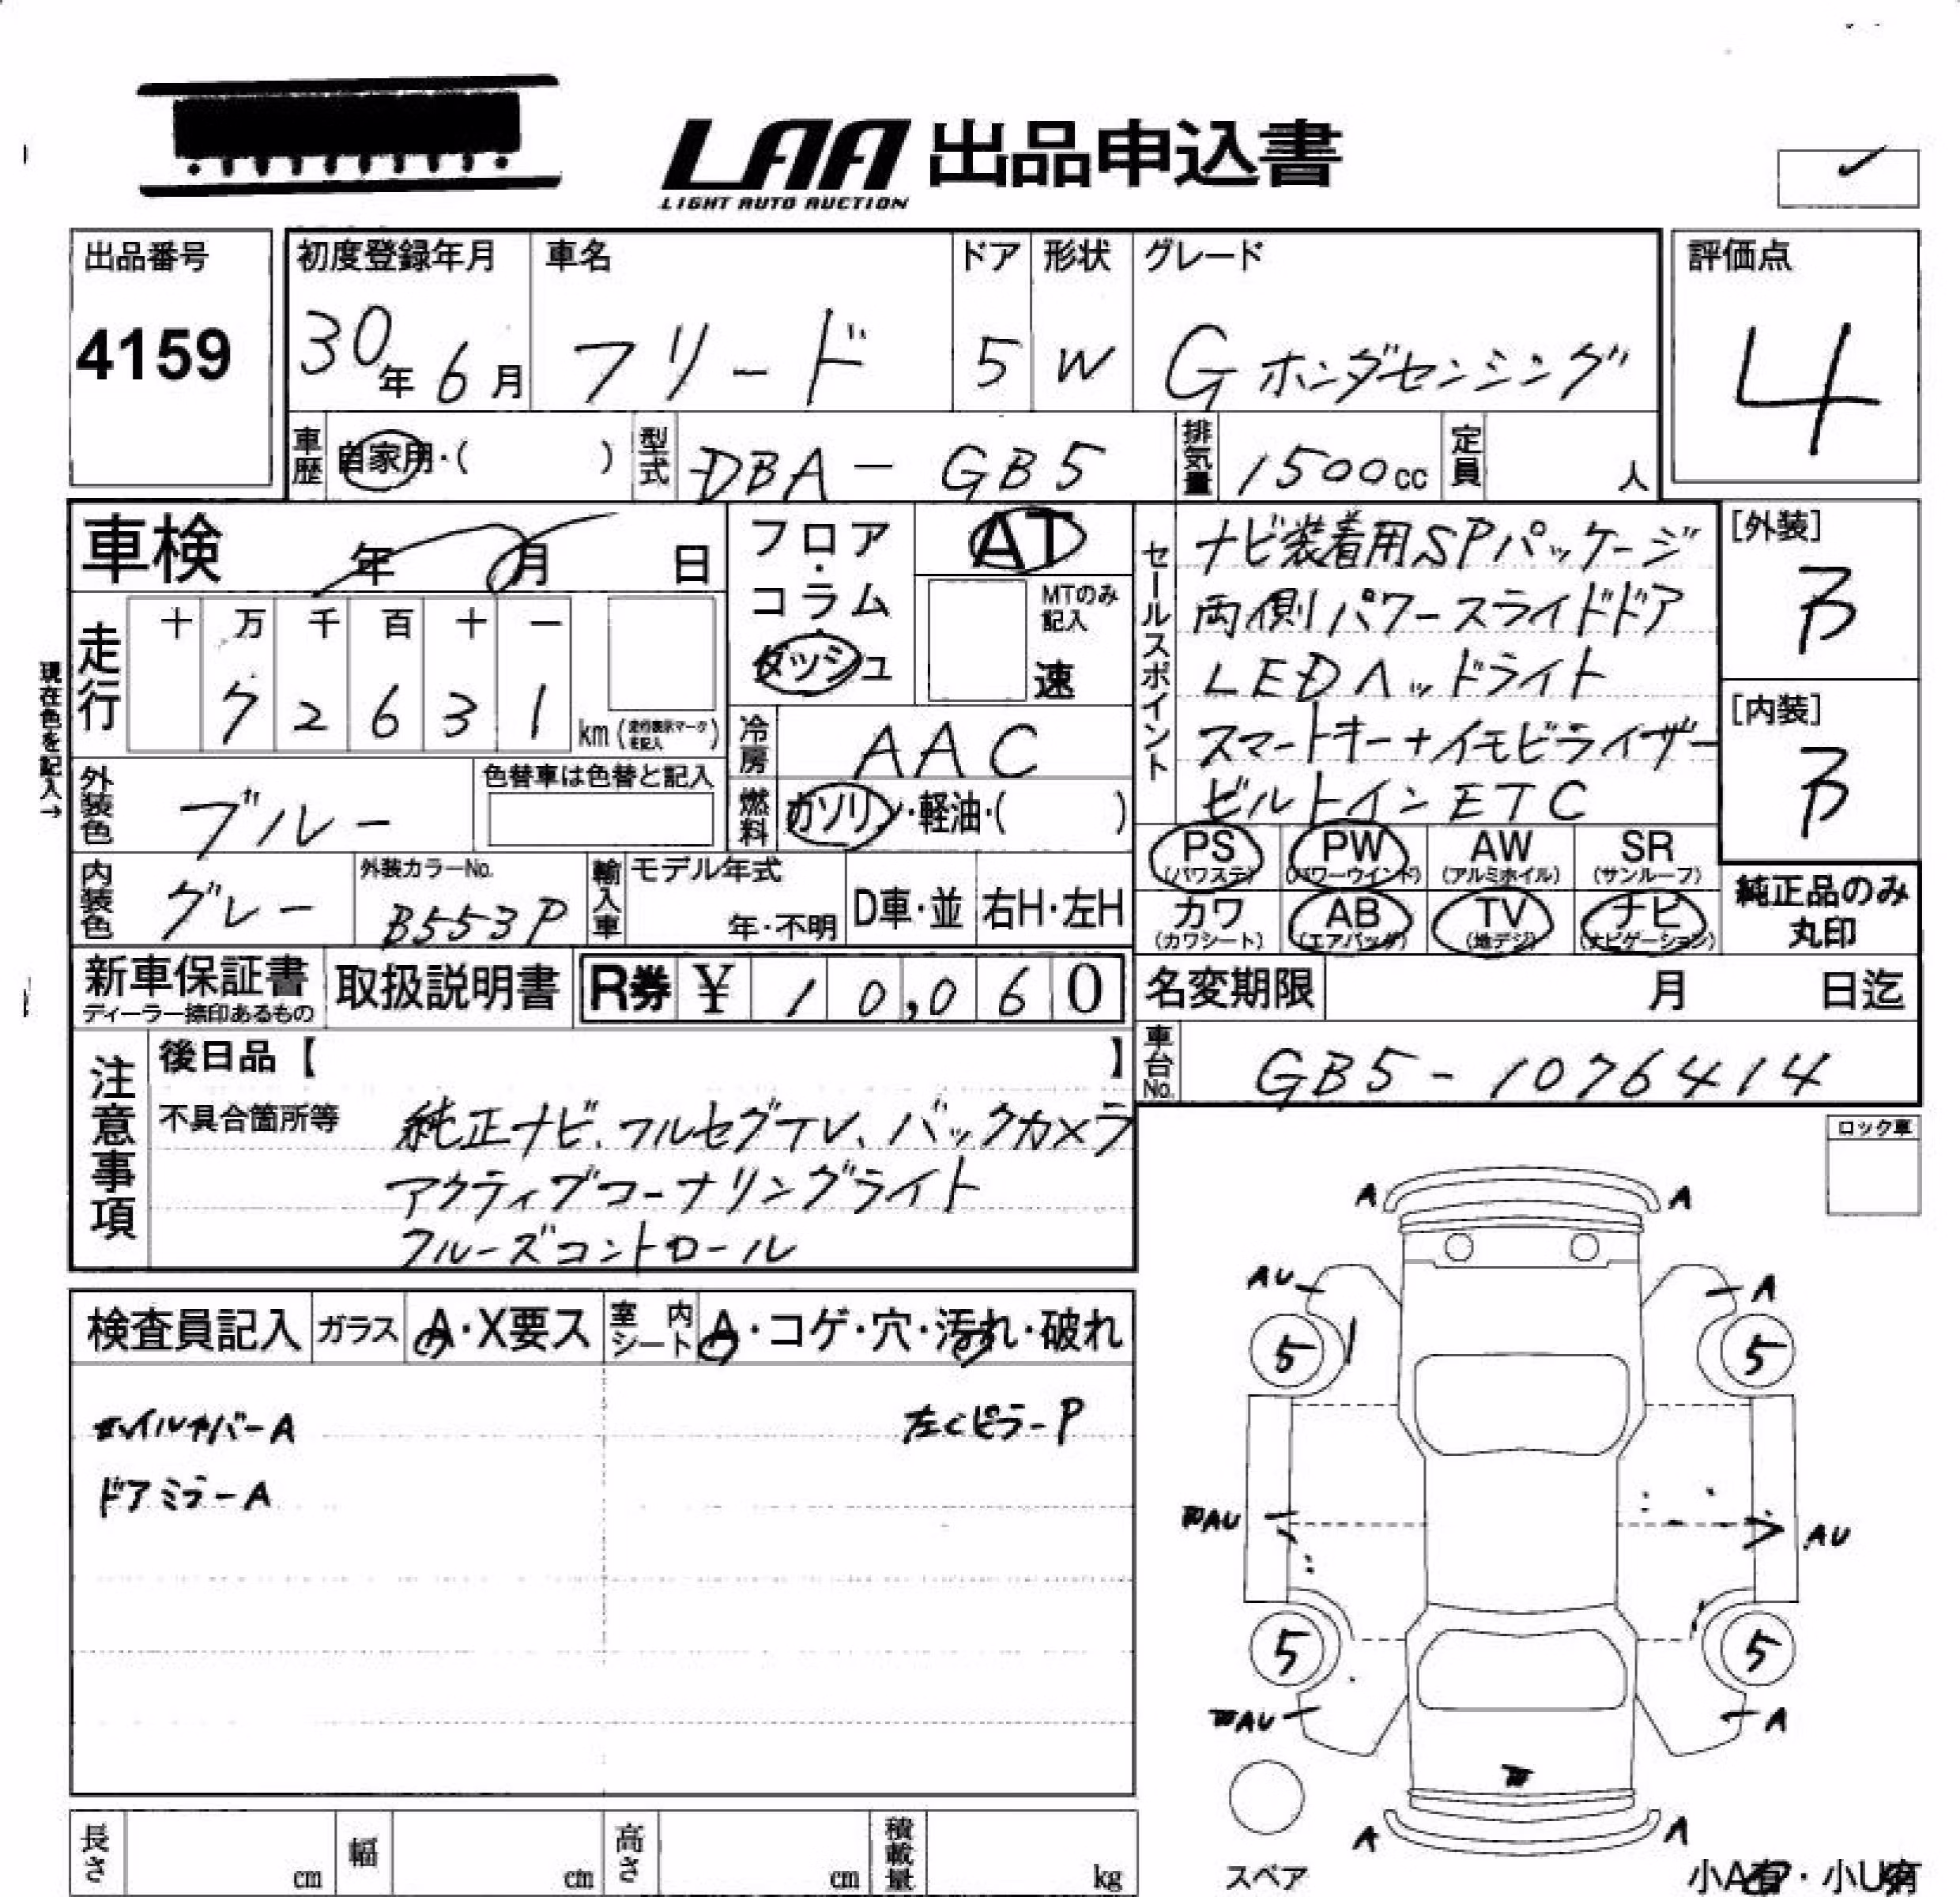 LAA 出品申込書
LIGHT AUTO AUCTION
出品番号
4159
初度登録年月
30年6月
車名
フリード
ドア
5
形状
W
グレード
G ホンダセンシング
評価点
4
車歴
自家用・( )
型式
DBA-GB5
排気量
1500cc
定員
人
車検 年 月 日
走行
十 万 千 百 十 一
7 2 6 3 1
km (走行表示マークを記入)
現在色を記入→
フロア・コラム・ダッシュ
AT
MTのみ記入
速
冷房
AAC
燃料
ガソリン・軽油・( )
セールスポイント
ナビ装着用SPパッケージ
両側パワースライドドア
LEDヘッドライト
スマートキー+イモビライザー
ビルトインETC
[外装]
B
[内装]
B
外装色
ブルー
色替車は色替と記入
内装色
グレー
外装カラーNo.
B553P
輸入車
モデル年式
年・不明
D車・並
右H・左H
PS (パワステ)
PW (パワーウインド)
AW (アルミホイル)
SR (サンルーフ)
カワ (カワシート)
AB (エアバッグ)
TV (地デジ)
ナビ (ナビゲーション)
純正品のみ
丸印
新車保証書
ディーラー捺印あるもの
取扱説明書
R券 ¥ 10,060
名変期限 月 日迄
車台No.
GB5-1076414
注意事項
後日品【 】
不具合箇所等
純正ナビ、フルセグTV、バックカメラ
アクティブコーナリングライト
クルーズコントロール
ロック車
検査員記入
ガラス
A・X要ス
室内シート
A・コゲ・穴・汚れ・破れ
ホイルカバーA
左Cピラ-P
ドアミラーA
A A
AU A
5 5
AU AU
5 5
AU A
A A
スペア
小A有・小U有
長さ cm
幅 cm
高さ cm
積載量 kg